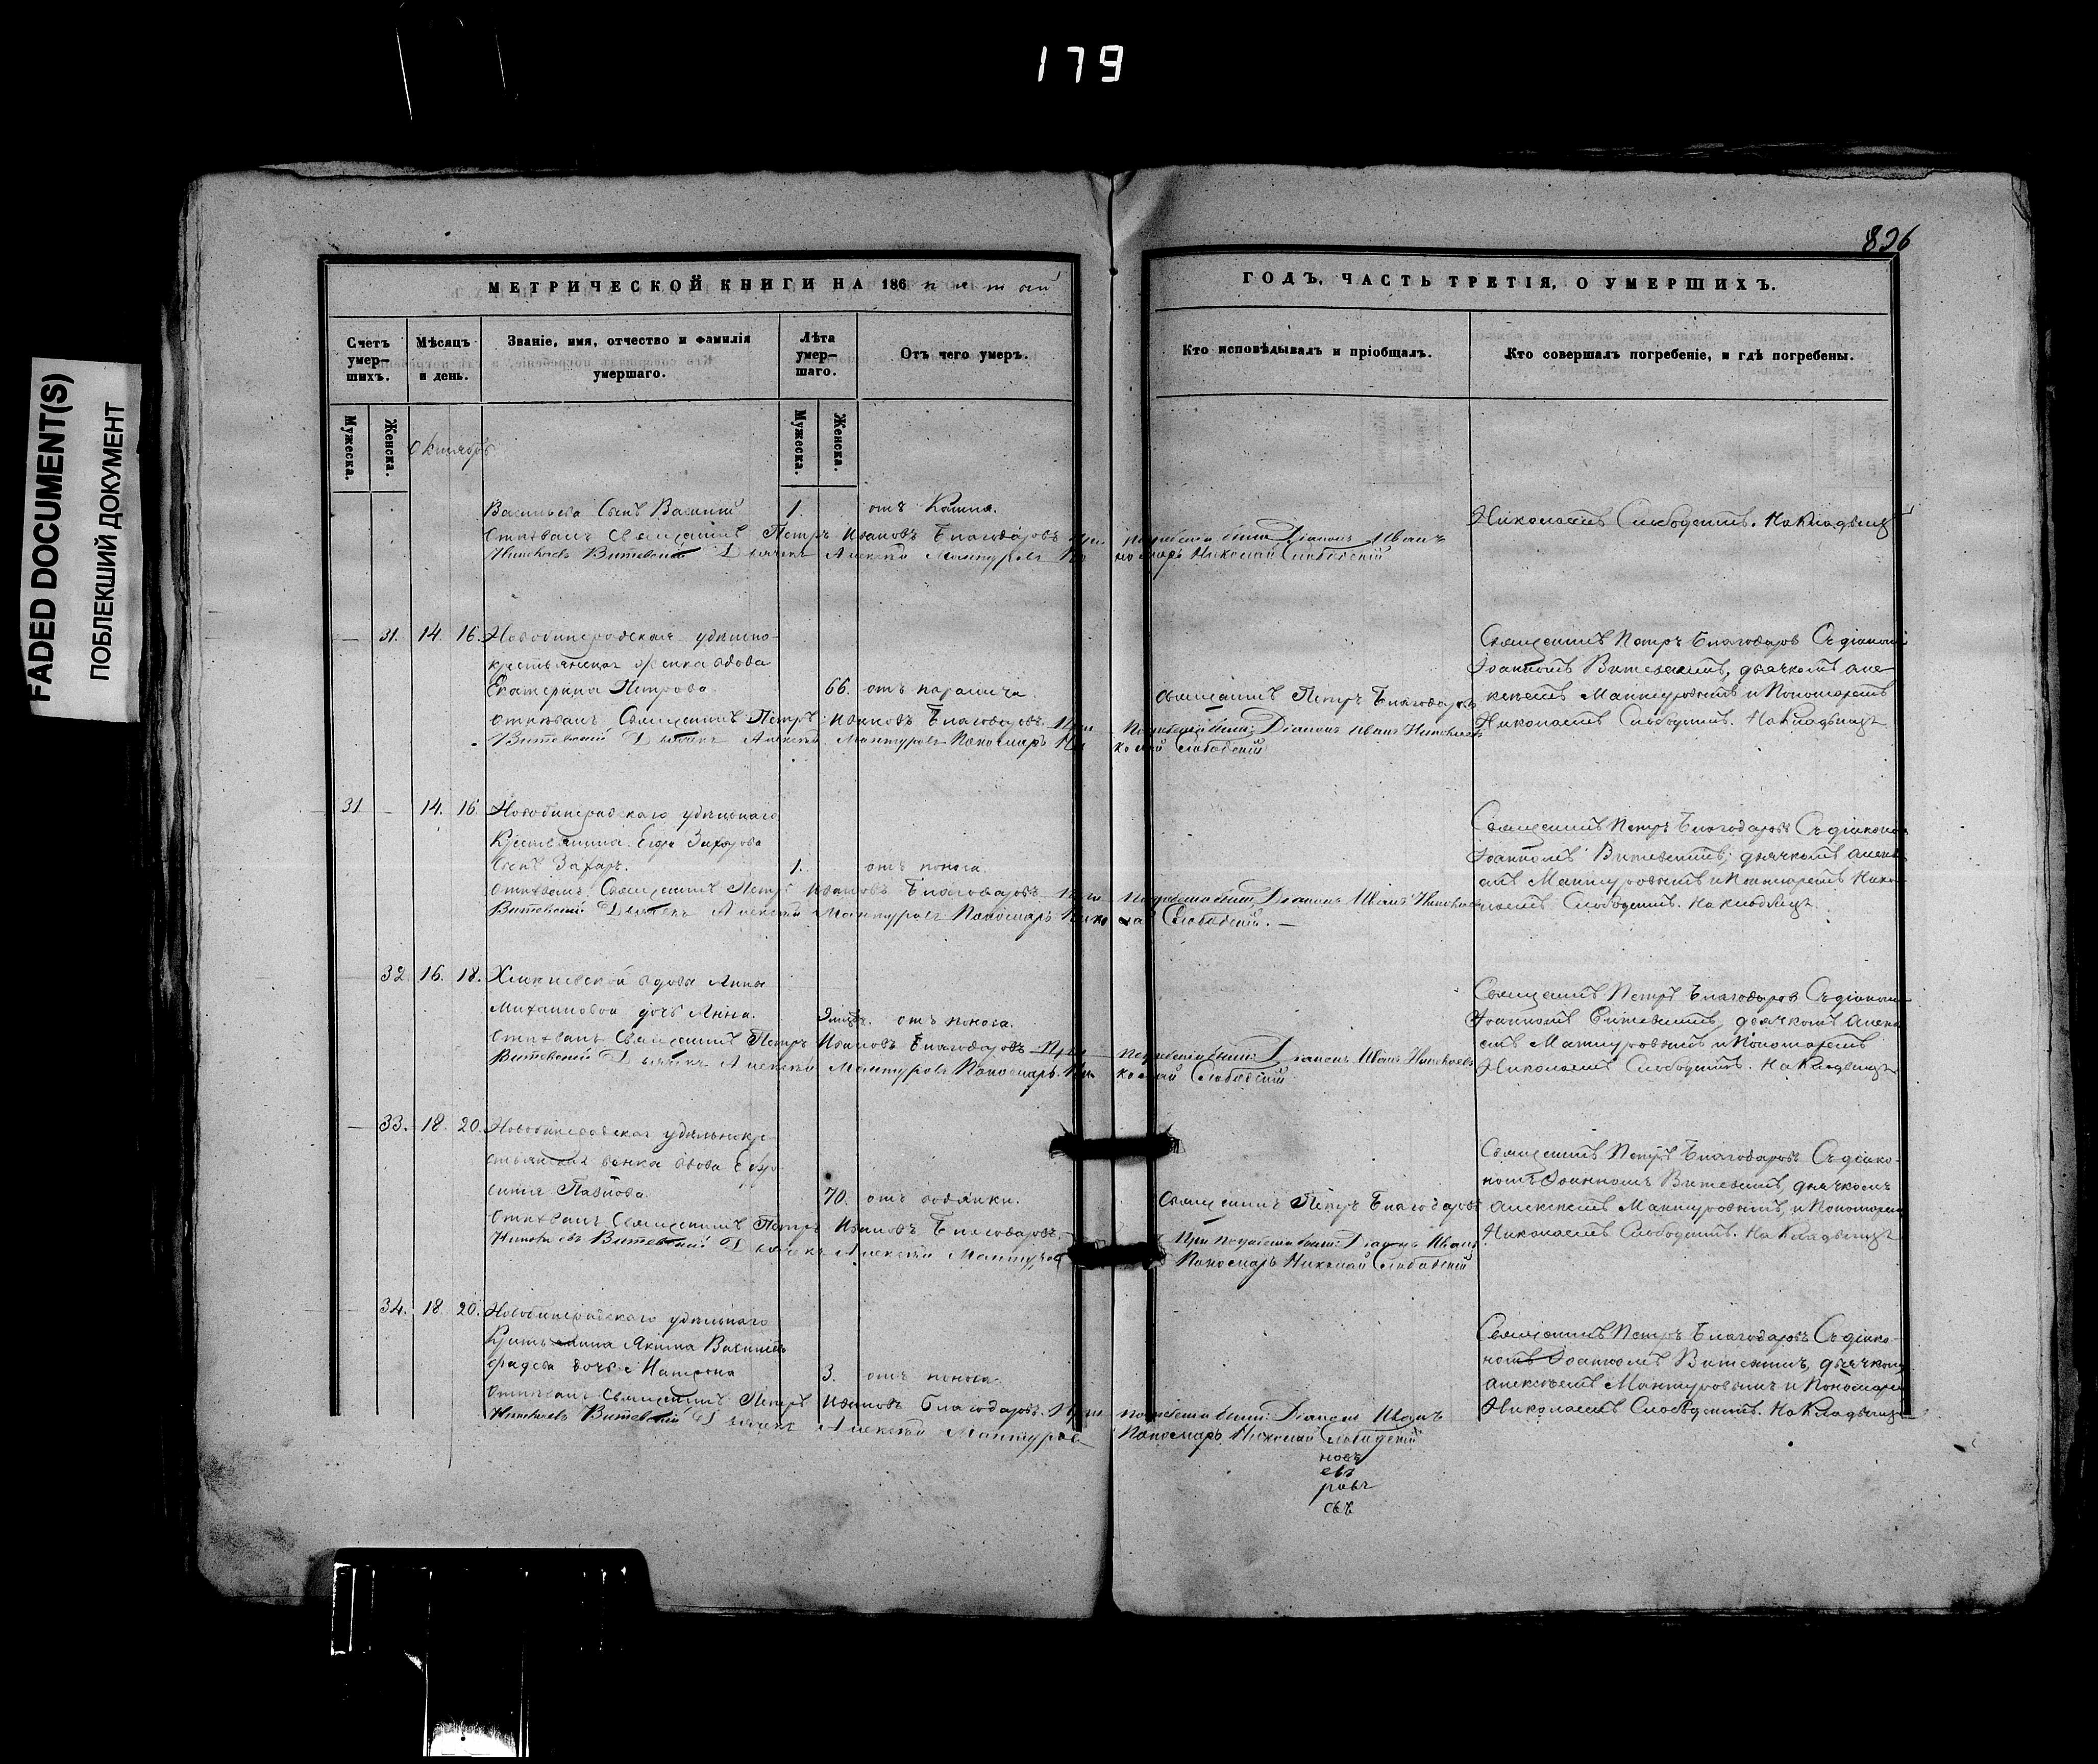 179
FADED DOCUMENT(S)
ПОБЛЕКШИЙ ДОКУМЕНТ
826
МЕТРИЧЕСКОЙ КНИГИ НА 186 пятый
ГОДЪ, ЧАСТЬ ТРЕТІЯ, О УМЕРШИХЪ.
Счетъ умер-шихъ.
Мѣсяцъ и день.
Званіе, имя, отчество и фамилія умершаго.
Лѣта умер-шаго.
Отъ чего умеръ.
Кто исповѣдывалъ и пріобщалъ.
Кто совершалъ погребеніе, и гдѣ погребены.
Мужеска.
Женска.
Октябрь
Мужеска.
Женска.
Васильева Сынъ Василій 1. отъ Кашля.
Николаемъ Слободскимъ. На Кладбищѣ
Отпѣвалъ Священникъ Петръ Ивановъ Благодаровъ При погребеніи были Діаконъ Иванъ
Витевскій Дьячекъ Алексѣй Мантуровъ Пономарь Николай Слободскій
— 31. 14. 16.
удѣльно-
крестьянская женка вдова
Екатерина Петрова. 66. отъ паралича.
Священникъ Петръ Благодаровъ
Священникъ Петръ Благодаровъ Съ діакономъ
Іоанномъ Витевскимъ, дьячкомъ Але-
ксѣемъ Мантуровымъ и Пономаремъ
Николаемъ Слободскимъ. На Кладбищѣ
Отпѣвалъ Священникъ Петръ Ивановъ Благодаровъ. При погребеніи были: Діаконъ Иванъ
Витевскій Дьячекъ Алексѣй Мантуровъ Пономарь Николай Слободскій
31 — 14. 16.
удѣльнаго
Крестьянина Егора Захарова
Сынъ Захаръ. 1. отъ поноса.
Священникъ Петръ Благодаровъ Съ діакономъ
Іоанномъ Витевскимъ, дьячкомъ Алексѣ-
емъ Мантуровымъ и Пономаремъ Нико-
лаемъ Слободскимъ. На Кладбищѣ
Отпѣвалъ Священникъ Петръ Ивановъ Благодаровъ. При погребеніи были: Діаконъ Иванъ
Витевскій Дьячекъ Алексѣй Мантуровъ Пономарь Николай Слободскій. —
32 16. 18.
вдовы Анны
Михайловой дочь Анна. отъ поноса.
Священникъ Петръ Благодаровъ Съ діакономъ
Іоанномъ Витевскимъ, дьячкомъ Алексѣ-
емъ Мантуровымъ и Пономаремъ
Николаемъ Слободскимъ. На Кладбищѣ
Отпѣвалъ Священникъ Петръ Ивановъ Благодаровъ При погребеніи были: Діаконъ Иванъ
Витевскій Дьячекъ Алексѣй Мантуровъ Пономарь Николай Слободскій
— 33. 18. 20.
удѣльнокре-
стьянская женка вдова Ефро-
синія Павлова. 70. отъ водянки.
Священникъ Петръ Благодаровъ
Священникъ Петръ Благодаровъ Съ діако-
номъ Іоанномъ Витевскимъ, дьячкомъ
Алексѣемъ Мантуровымъ, и Пономаремъ
Николаемъ Слободскимъ. На Кладбищѣ
Отпѣвалъ Священникъ Петръ Ивановъ Благодаровъ.
Витевскій Дьячекъ Алексѣй Мантуровъ
При погребеніи были: Діаконъ Иванъ
Пономарь Николай Слободскій
34. 18 20.
удѣльнаго
Крестьянина Якима
дочь Матрона 3. отъ поноса.
Священникъ Петръ Благодаровъ Съ діако-
номъ Іоанномъ Витевскимъ, дьячкомъ
Алексѣемъ Мантуровымъ и Пономаремъ
Николаемъ Слободскимъ. На Кладбищѣ
Отпѣвалъ Священникъ Петръ Ивановъ Благодаровъ. При погребеніи были: Діаконъ Иванъ
Витевскій Дьячекъ Алексѣй Мантуровъ Пономарь Николай Слободскій
новъ
евъ
ровъ
съ